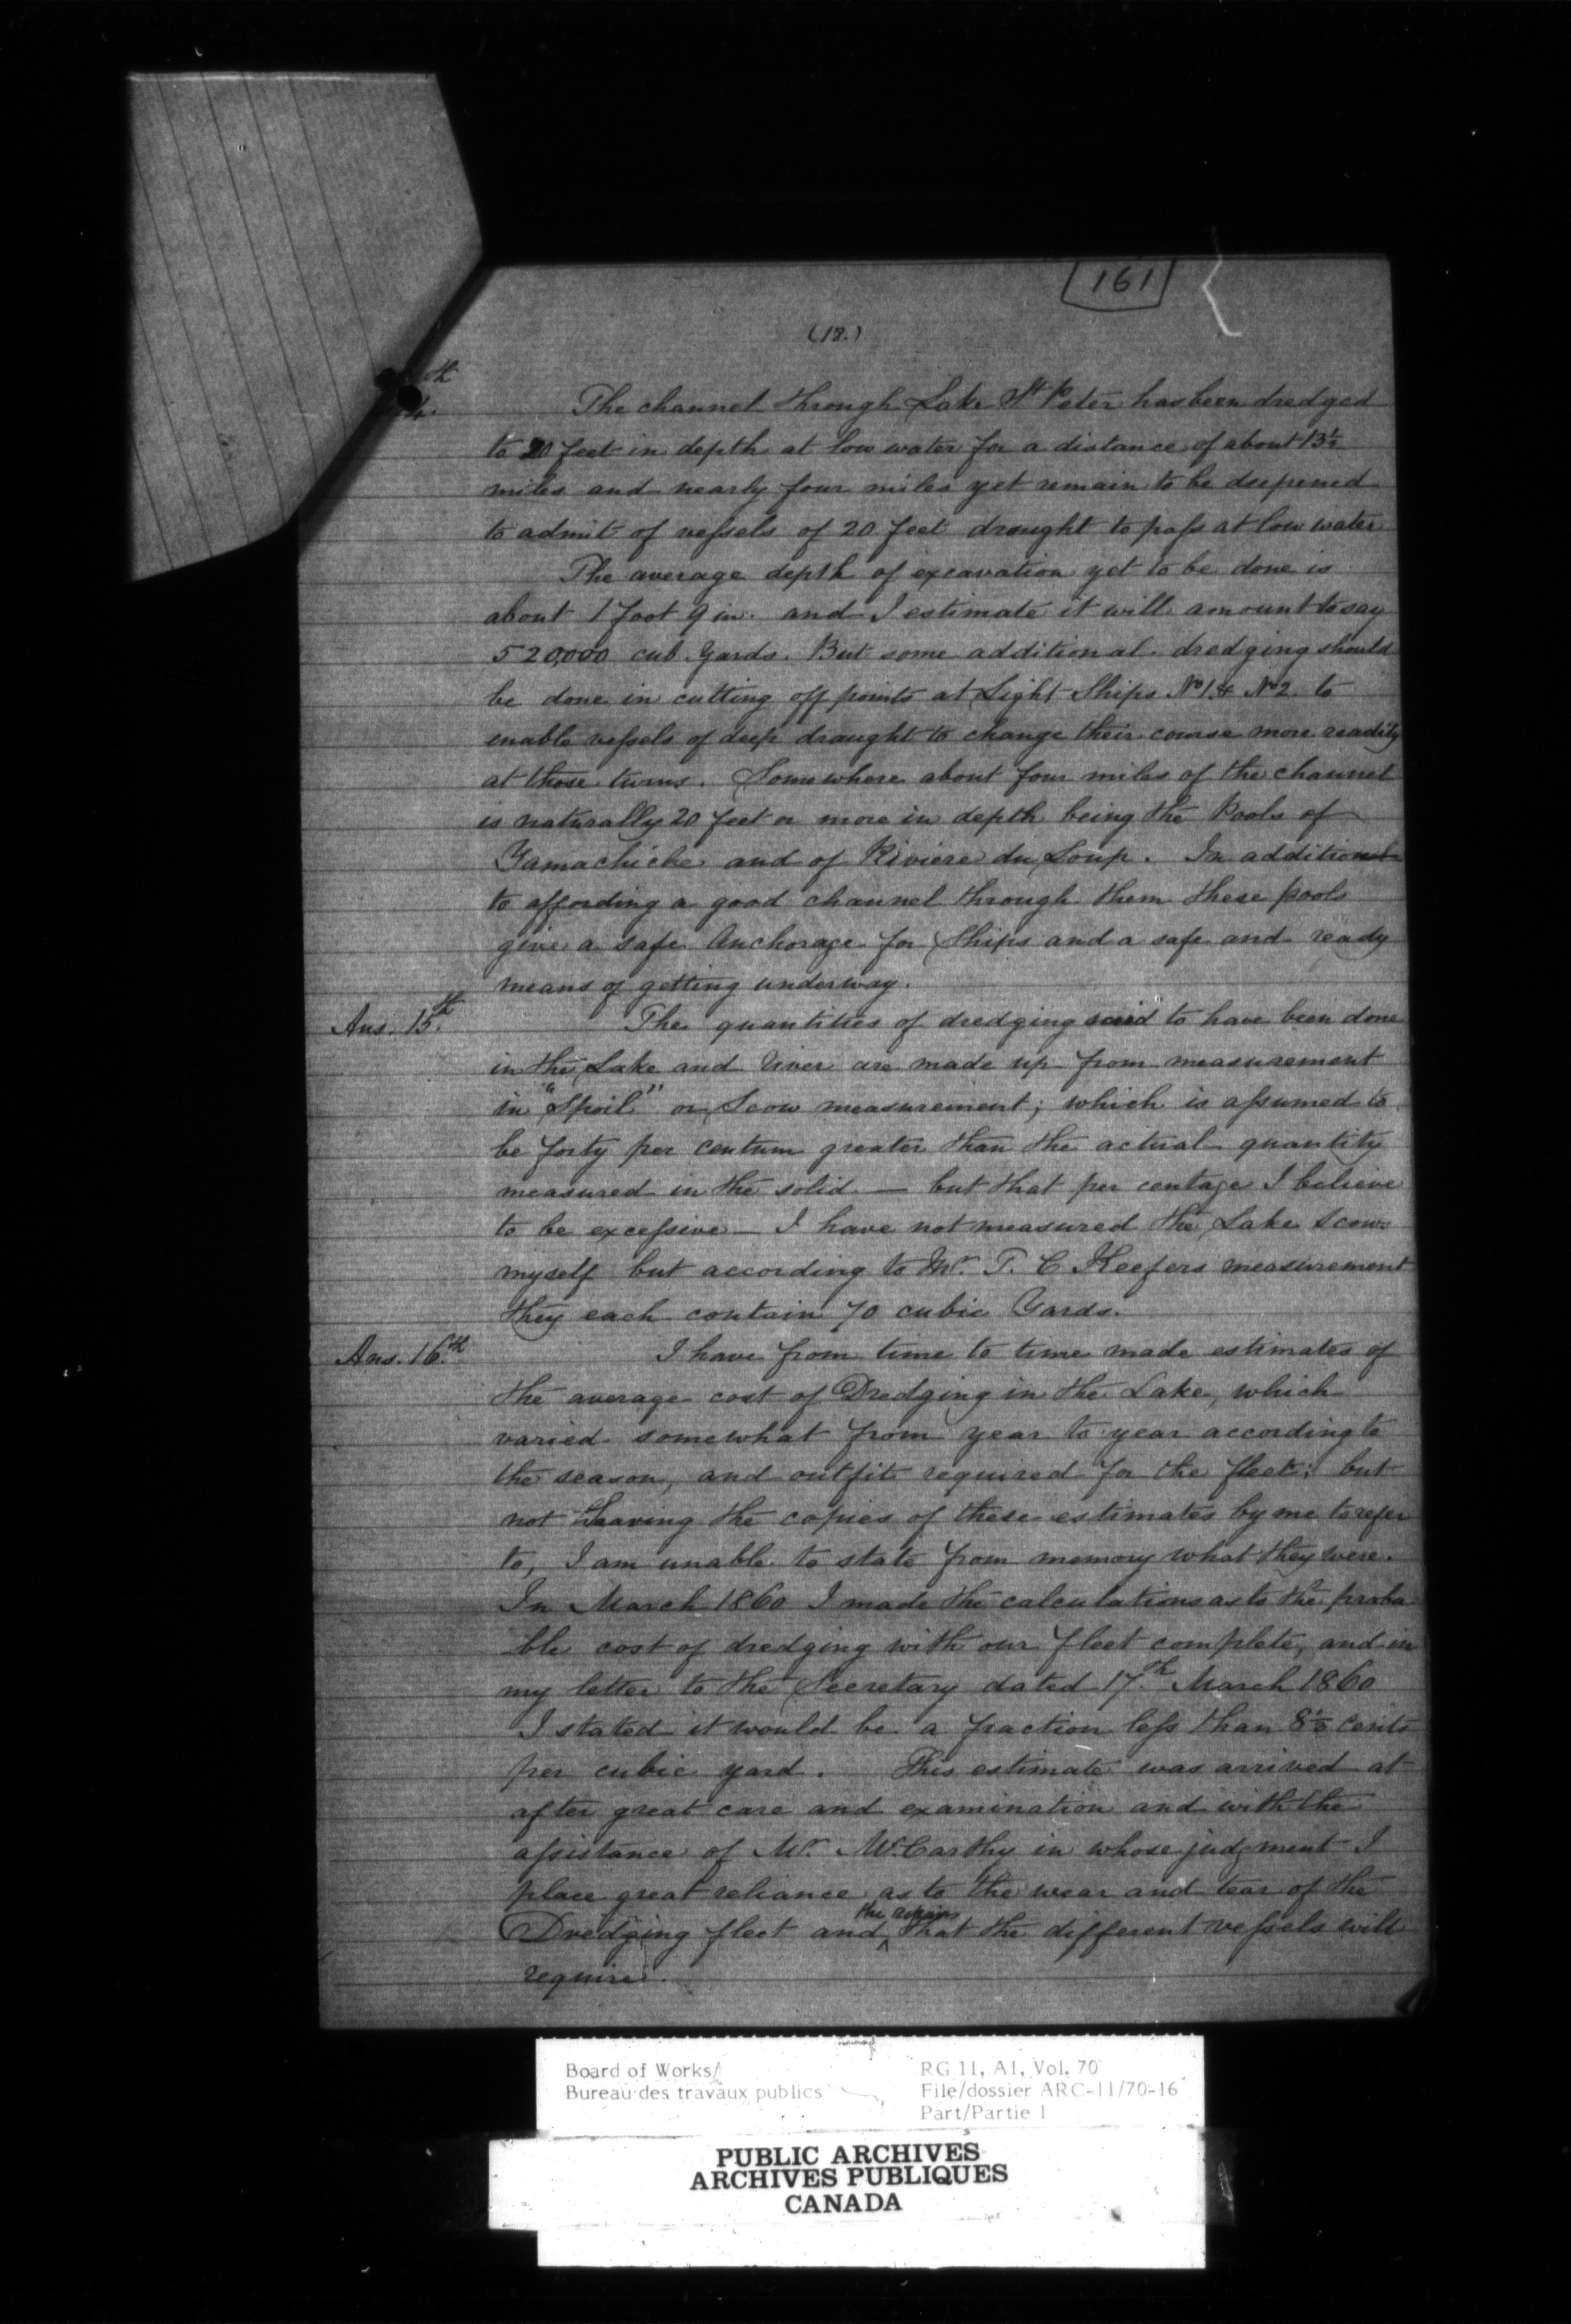 161
(18.)
th
The channel through Lake St Peter has been dredged
to 20 feet in depth at low water for a distance of about 13½
miles and nearly four miles yet remain to be deepened
to admit of vessels of 20 feet draught to pass at low water
The average depth of excavation yet to be done is
about 1 foot 9 in. and I estimate it will amount to say
520,000 cub. Yards. But some additional dredging should
be done in cutting off points at Light Ships No 1. & No 2 to
enable vessels of deep draught to change their course more readily
at those turns. Somewhere about four miles of the channel
is naturally 20 feet or more in depth being the Pools of
Yamachiche and of Riviere du Loup. In addition
to affording a good channel through them these pools
give a safe Anchorage for Ships and a safe and ready
means of getting underway.
Ans. 15th. The quantities of dredging said to have been done
in the Lake and River are made up from measurement
in "Spoil" or Scow measurement; which is assumed to
be forty per centum greater than the actual quantity
measured in the solid — but that per centage I believe
to be excessive — I have not measured the Lake Scows
myself but according to Mr. T. C Keefers measurement
they each contain 70 cubic Yards.
Ans. 16th. I have from time to time made estimates of
the average cost of Dredging in the Lake, which
varied somewhat from year to year according to
the season, and outfit required for the fleet; but
not having the copies of these estimates by me to refer
to, I am unable to state from memory what they were.
In March 1860 I made the calculations as to the proba
ble cost of dredging with our fleet complete, and in
my letter to the Secretary dated 17th. March 1860
I stated it would be a fraction less than 8½ Cents
per cubic yard. This estimate was arrived at
after great care and examination and with the
assistance of Mr. McCarthy in whose judgment I
place great reliance as to the wear and tear of the
Dredging fleet and the repairs that the different vessels will
require.
Board of Works/
Bureau des travaux publics
RG 11, A1, Vol. 70
File/dossier ARC-11/70-16
Part/Partie 1
PUBLIC ARCHIVES
ARCHIVES PUBLIQUES
CANADA